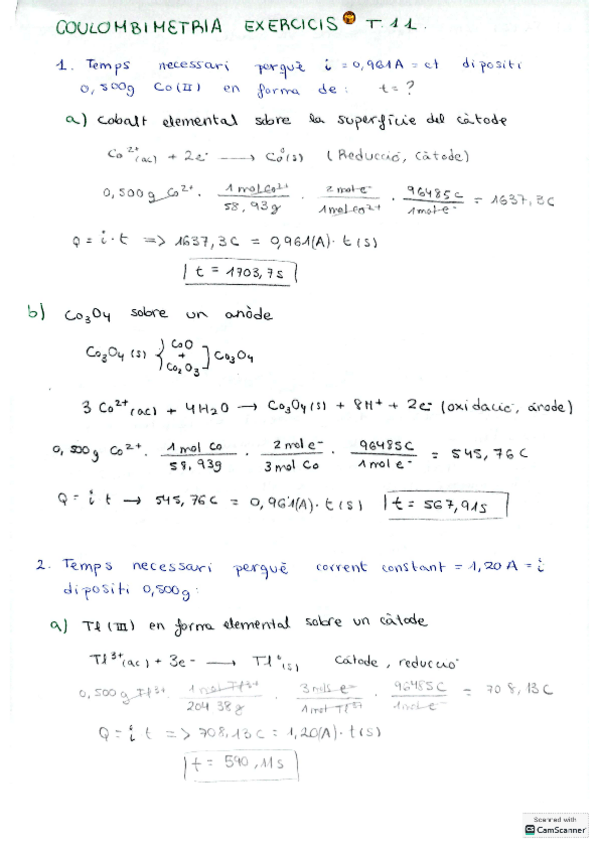 COULOMBIMETRIA EXERCICIS T.11.
1. Temps necessari perquè i = 0,961A = ct dipositi
0,500g Co(II) en forma de: t = ?
a) Cobalt elemental sobre la superfície del càtode
Co²⁺(ac) + 2e⁻ ⟶ Co⁰(s) (Reducció, càtode)
0,500g Co²⁺ · 1 mol Co²⁺/58,93g · 2 mol e⁻/1 mol Co²⁺ · 96485C/1 mol e⁻ = 1637,3C
Q = i · t => 1637,3C = 0,961(A) · t(s)
t = 1703,7s
b) Co₃O₄ sobre un anòde
Co₃O₄(s) { CoO + Co₂O₃ ] Co₃O₄
3 Co²⁺(ac) + 4H₂O ⟶ Co₃O₄(s) + 8H⁺ + 2e⁻ (oxidació, ánode)
0,500g Co²⁺ · 1 mol Co/58,93g · 2 mol e⁻/3 mol Co · 96485C/1 mol e⁻ = 545,76C
Q = i t → 545,76C = 0,961(A) · t(s) t = 567,91s
2. Temps necessari perquè corrent constant = 1,20A = i
dipositi 0,500g:
a) Tl(III) en forma elemental sobre un càtode
Tl³⁺(ac) + 3e⁻ ⟶ Tl⁰(s) Càtode, reducció
0,500g Tl³⁺ · 1 mol Tl³⁺/204,38g · 3 mols e⁻/1 mol Tl³⁺ · 96485C/1 mol e⁻ = 708,13C
Q = i t => 708,13C = 1,20(A) · t(s)
t = 590,11s
Scanned with
CS CamScanner